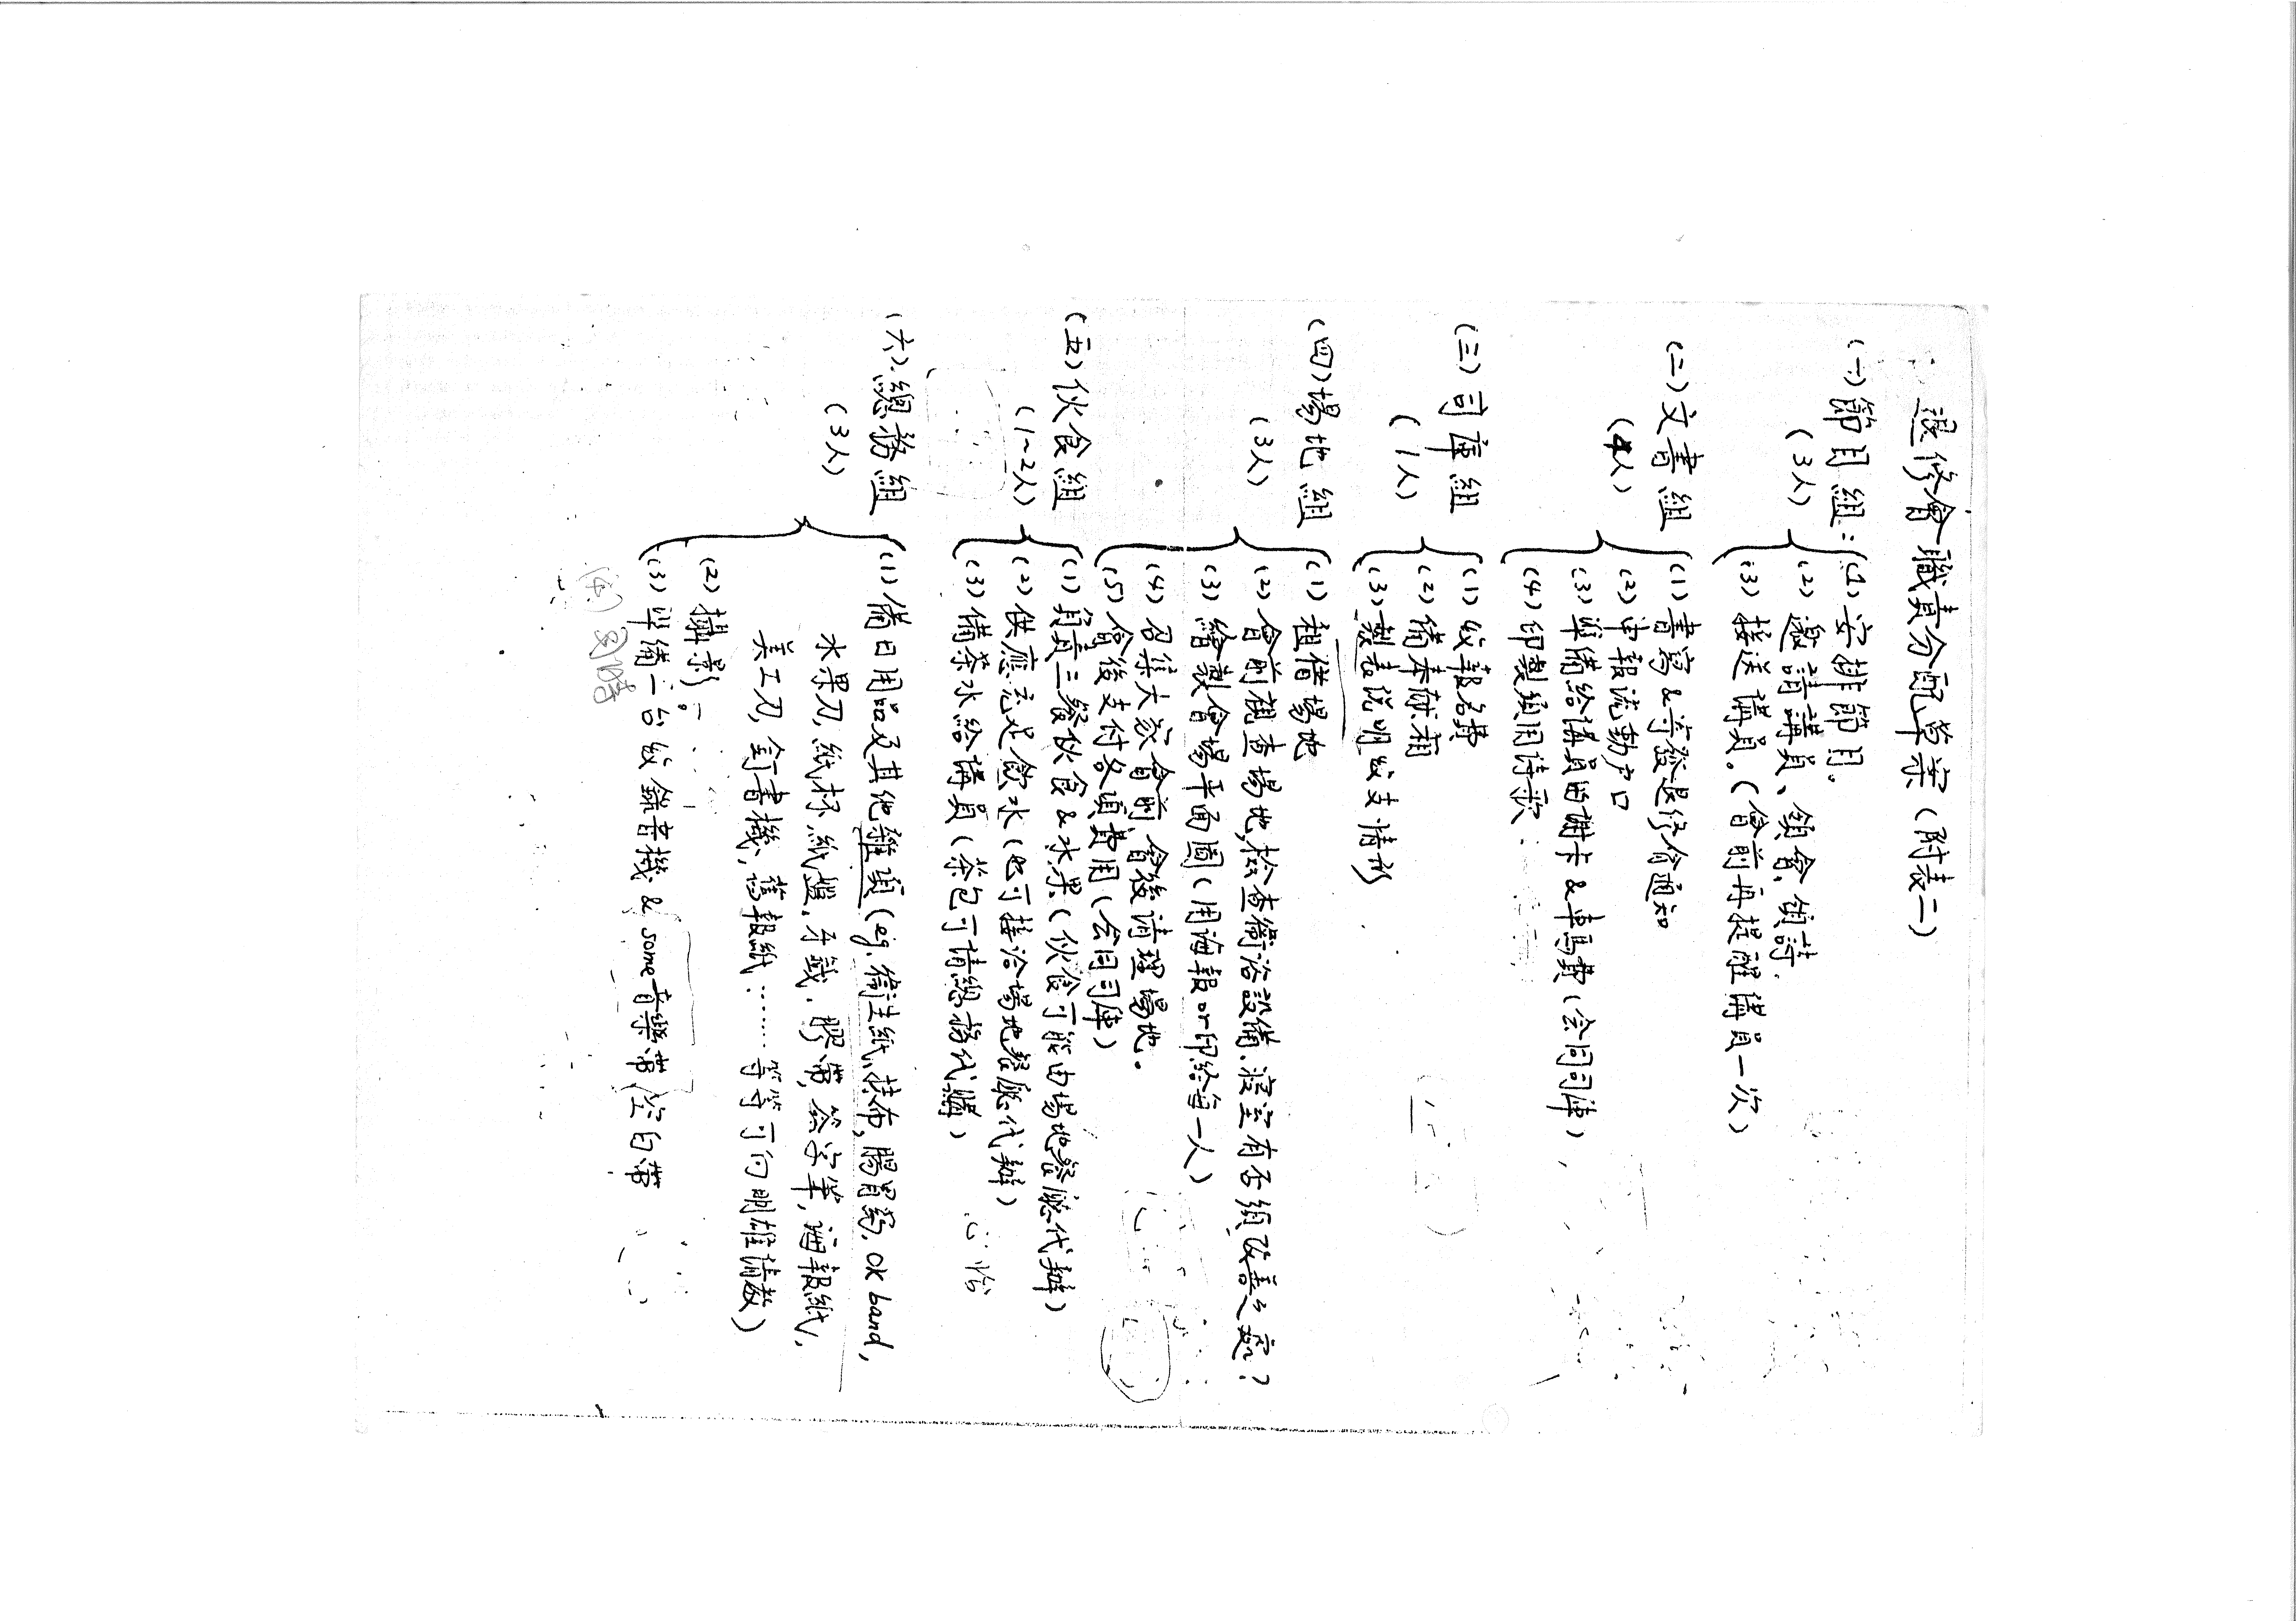 退修會職責分配草案(附表二)
(一)節目組:
(3人)
(1)安排節目。
(2)邀請講員、領會、領詩.
(3)接送講員。(會前再提醒講員一次)
(二)文書組
(4人)
(1)書寫&寄發退修會通知
(2)申報流動户口
(3)準備給講員的謝卡&車馬費(会同司庫)
(4)印製須用詩歌
(三)司庫組
(1人)
(1)收報名費
(2)備奉献箱
(3)製表说明收支情形
(四)場地組
(3人)
(1)租借場地
(2)會前視查場地,檢查衛浴設備、寢室有否須改善之處?
(3)繪製會場平面圖(用海報or印給每一人)
(4)召集大家會前、會後清理場地。
(5)會後支付各項費用(会同司庫)
(五)伙食組
(1~2人)
(1)負責三餐伙食&水果(伙食可能由場地餐廳代辦)
(2)供應充足飲水(也可接洽場地餐廳代辦)
(3)備茶水給講員(茶包可請總務代購)
(六)總務組
(3人)
(1)備日用品及其他雜項(eg.衛生紙、抹布,腸胃葯,OK band,
水果刀,紙杯、紙盤、牙籤、膠帶,簽字筆,海報紙,
美工刀,釘書機、舊報紙……等等可向明雄請教)
(2)攝影。
(3)準備二台收錄音機& some音樂帶(空白帶